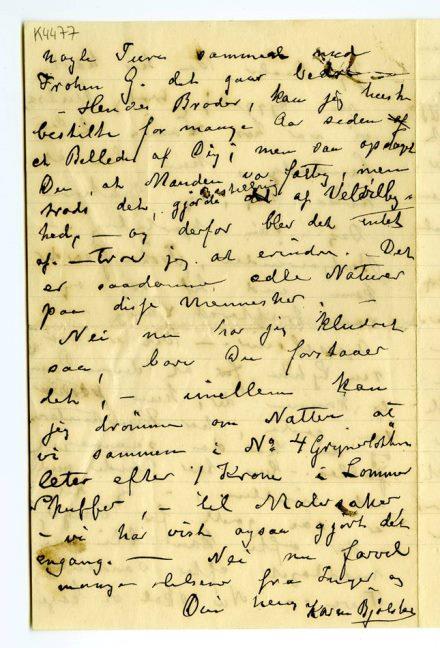 K4477
nogle Turer sammen med
Frøken G. det gaar bedre —
— Hendes Broder, kan jeg huske
bestilte for mange Aar siden
et Billede af Dig; men saa opdaget
Du, at Manden var fattig, men
trods det, gjorde bestilling af Veldilig-
hed, — og derfor blev det intet
af. — tror jeg at erindre. — Det
er saadanne edle Naturer
paa disse Mennesker. —
Nei nu har jeg kludret
saa, bare Du forstaaer
det, — imellem kan
jeg drømme om Natten at
vi sammen i No 4 Grønerløkken
leter efter 1 Krone i Lommer
Skuffer, — til Malersaker
— vi har visst ogsaa gjort det
engang. — Nei nu farvel
mange Hilsener fra Inger og
Din heng Karen Bjølstad